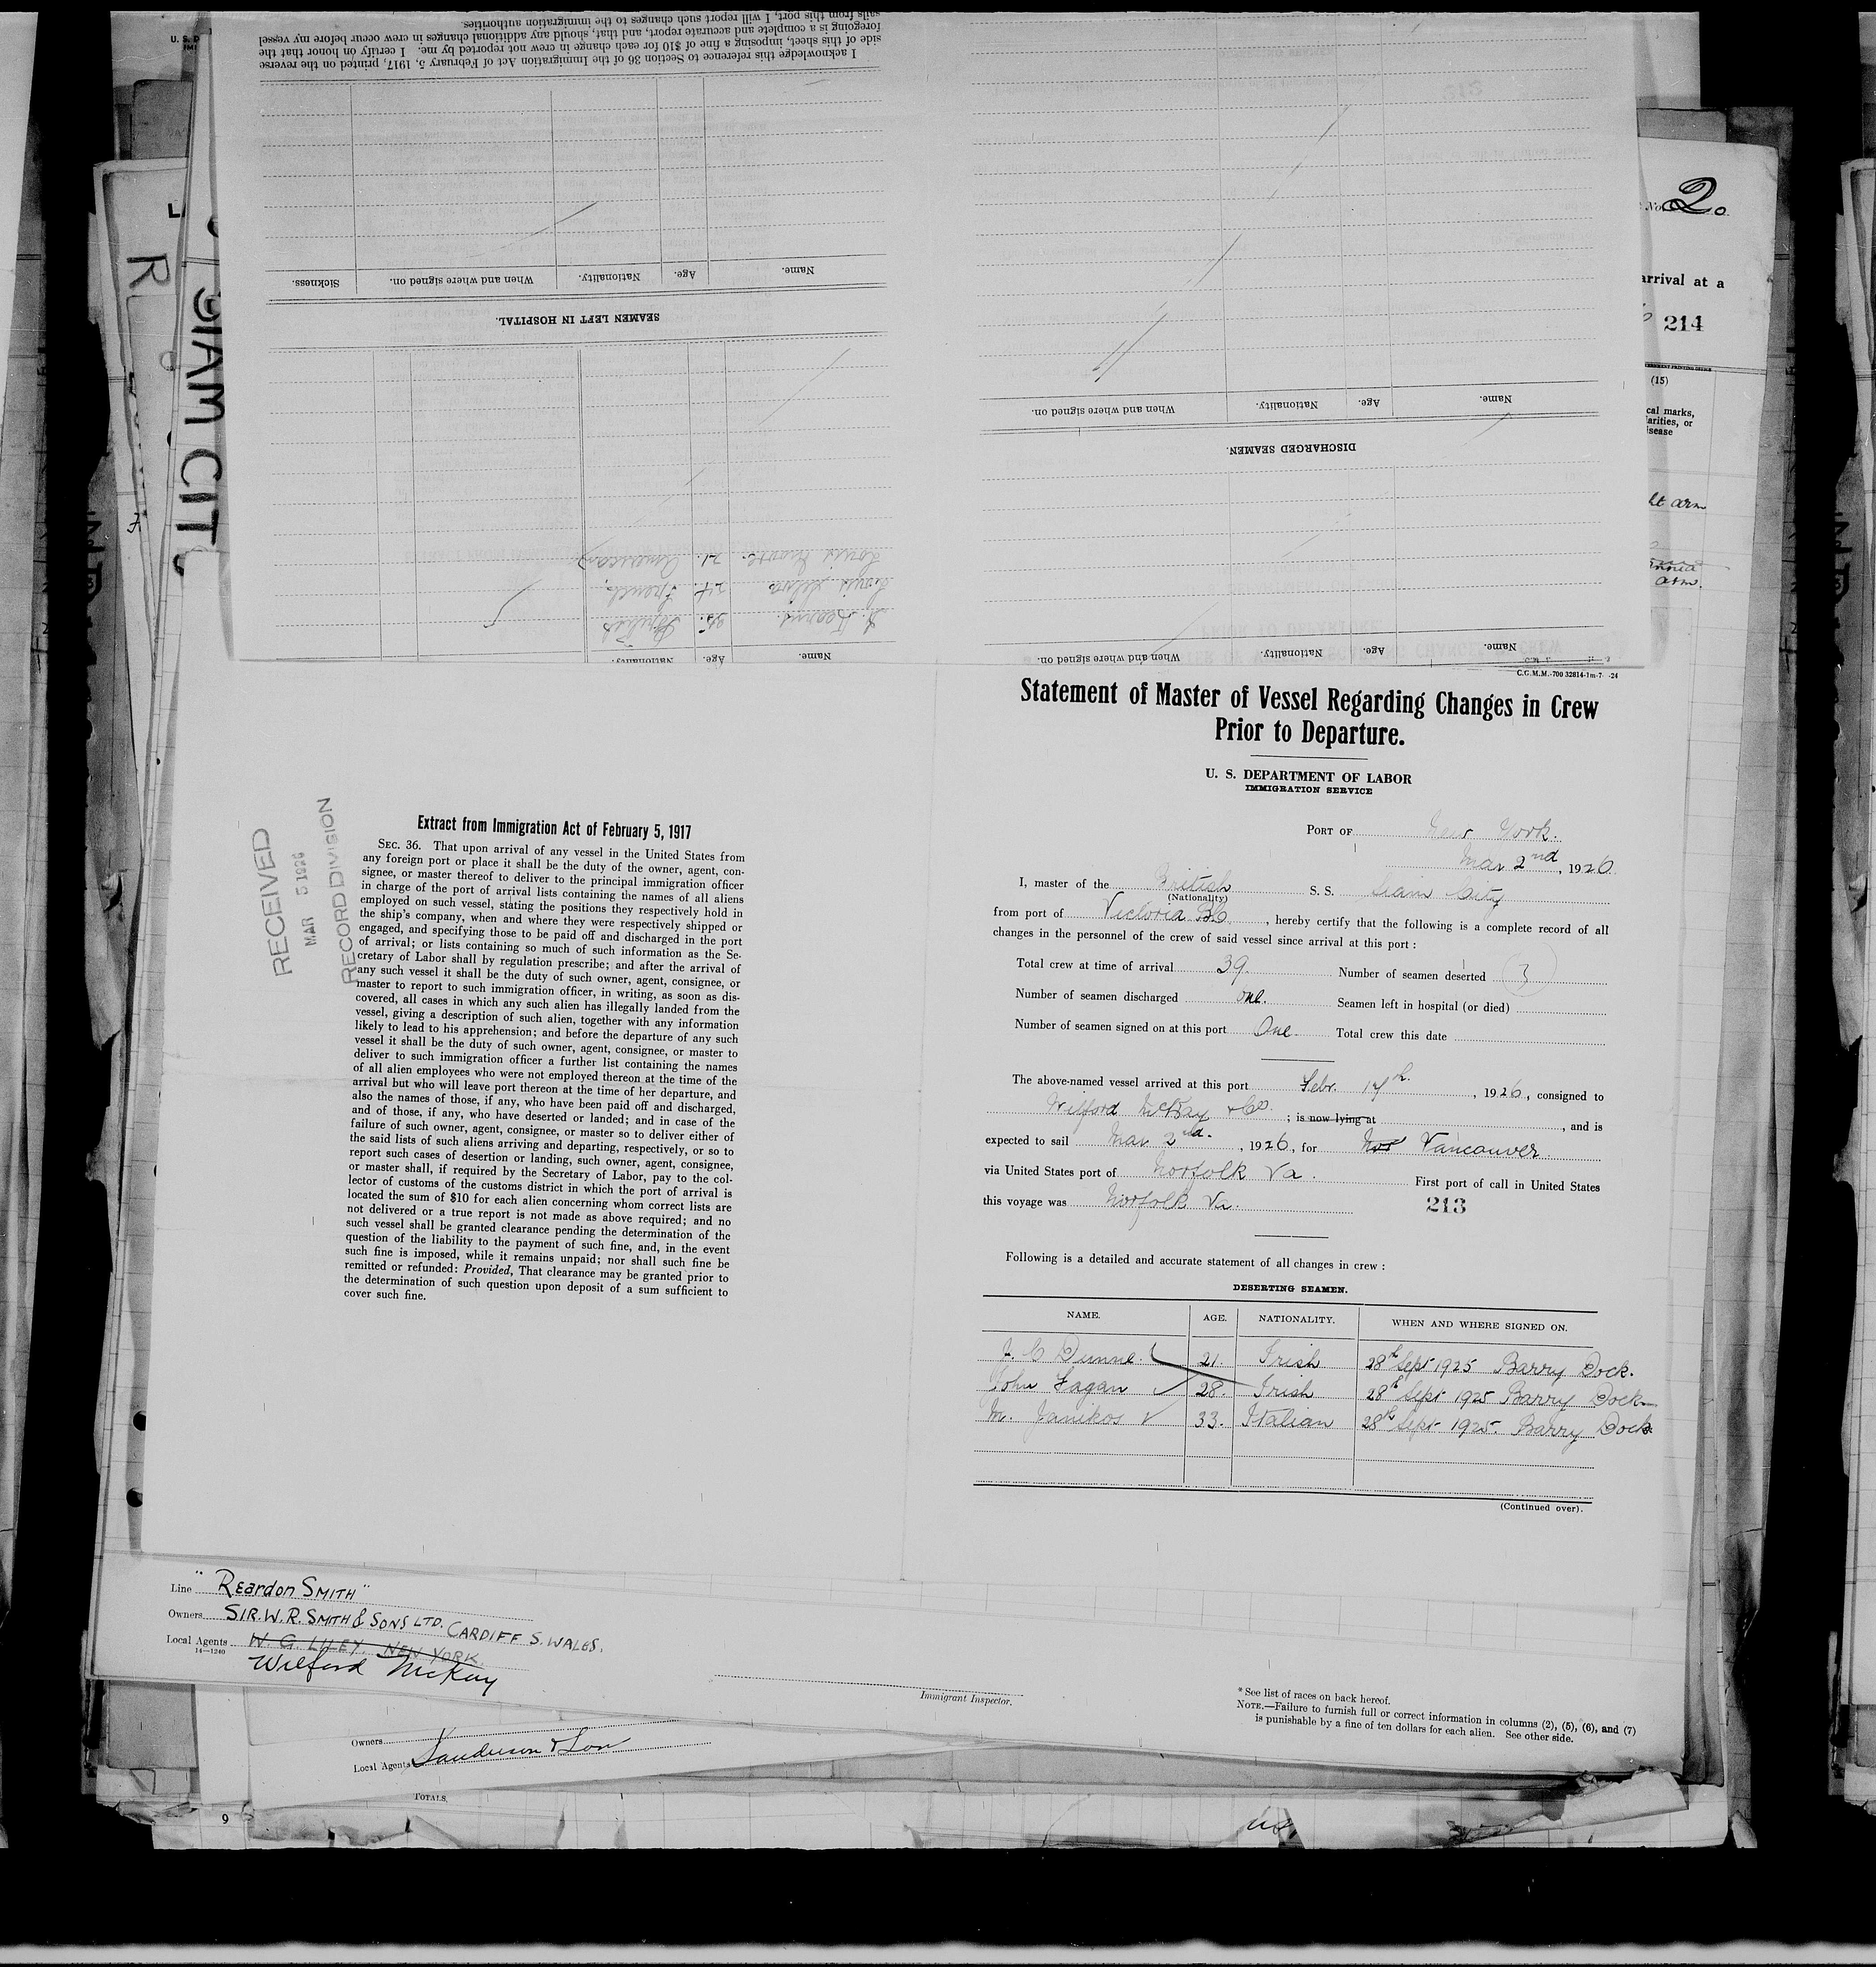 sails from this port, I will report such changes to the immigration authorities.
foregoing is a complete and accurate report, and that, should any additional changes in crew occur before my vessel
side of this sheet, imposing a fine of $10 for each change in crew not reported by me. I certify on honor that the
I acknowledge this reference to Section 36 of the Immigration Act of February 5, 1917, printed on the reverse
Sickness. When and where signed on. Nationality. Age. Name.
SEAMEN LEFT IN HOSPITAL.
When and where signed on. Nationality. Age. Name.
DISCHARGED SEAMEN.
Louis 21. American
24 French
25.
Nationality. Age. Name.
When and where signed on. Nationality. Age. Name.
No. 2.
arrival at a
214
(15)
cal marks,
larities, or
isease
lt arm
arm.
SIAM CIT
C.G.M.M.-700 32814-1m-7 -24
Statement of Master of Vessel Regarding Changes in Crew
Prior to Departure.
U. S. DEPARTMENT OF LABOR
IMMIGRATION SERVICE
PORT OF New York.
Mar 2nd, 1926
I, master of the British S. S. Siam City
(Nationality)
from port of Victoria BC, hereby certify that the following is a complete record of all
changes in the personnel of the crew of said vessel since arrival at this port :
Total crew at time of arrival 39. Number of seamen deserted 3
Number of seamen discharged one. Seamen left in hospital (or died)
Number of seamen signed on at this port One. Total crew this date
The above-named vessel arrived at this port Febr. 17th, 1926, consigned to
Wilford McKay & Co ; is now lying at , and is
expected to sail Mar 2nd., 1926, for Nor Vancouver
via United States port of Norfolk Va. First port of call in United States
this voyage was Norfolk Va.
213
Following is a detailed and accurate statement of all changes in crew :
DESERTING SEAMEN.
NAME. AGE. NATIONALITY. WHEN AND WHERE SIGNED ON.
J. C Dunne. 21. Irish 28th Sept 1925 Barry Dock.
John Fagan 28. Irish 28th Sept 1925 Barry Dock
M. Janikos 33. Italian 28th Sept 1925. Barry Dock
(Continued over).
RECEIVED
MAR 5 1926
RECORD DIVISION
Extract from Immigration Act of February 5, 1917
SEC. 36. That upon arrival of any vessel in the United States from
any foreign port or place it shall be the duty of the owner, agent, con-
signee, or master thereof to deliver to the principal immigration officer
in charge of the port of arrival lists containing the names of all aliens
employed on such vessel, stating the positions they respectively hold in
the ship's company, when and where they were respectively shipped or
engaged, and specifying those to be paid off and discharged in the port
of arrival; or lists containing so much of such information as the Se-
cretary of Labor shall by regulation prescribe; and after the arrival of
any such vessel it shall be the duty of such owner, agent, consignee, or
master to report to such immigration officer, in writing, as soon as dis-
covered, all cases in which any such alien has illegally landed from the
vessel, giving a description of such alien, together with any information
likely to lead to his apprehension; and before the departure of any such
vessel it shall be the duty of such owner, agent, consignee, or master to
deliver to such immigration officer a further list containing the names
of all alien employees who were not employed thereon at the time of the
arrival but who will leave port thereon at the time of her departure, and
also the names of those, if any, who have been paid off and discharged,
and of those, if any, who have deserted or landed; and in case of the
failure of such owner, agent, consignee, or master so to deliver either of
the said lists of such aliens arriving and departing, respectively, or so to
report such cases of desertion or landing, such owner, agent, consignee,
or master shall, if required by the Secretary of Labor, pay to the col-
lector of customs of the customs district in which the port of arrival is
located the sum of $10 for each alien concerning whom correct lists are
not delivered or a true report is not made as above required; and no
such vessel shall be granted clearance pending the determination of the
question of the liability to the payment of such fine, and, in the event
such fine is imposed, while it remains unpaid; nor shall such fine be
remitted or refunded: Provided, That clearance may be granted prior to
the determination of such question upon deposit of a sum sufficient to
cover such fine.
Line "Reardon Smith"
Owners SIR. W. R. SMITH & SONS LTD. CARDIFF S. WALES.
Local Agents W. G. LILEY. NEW YORK.
14—1240
Wilford McKay
Immigrant Inspector.
* See list of races on back hereof.
NOTE.—Failure to furnish full or correct information in columns (2), (5), (6), and (7)
is punishable by a fine of ten dollars for each alien. See other side.
Owners
Local Agents Sanderson & Son
TOTALS,
9